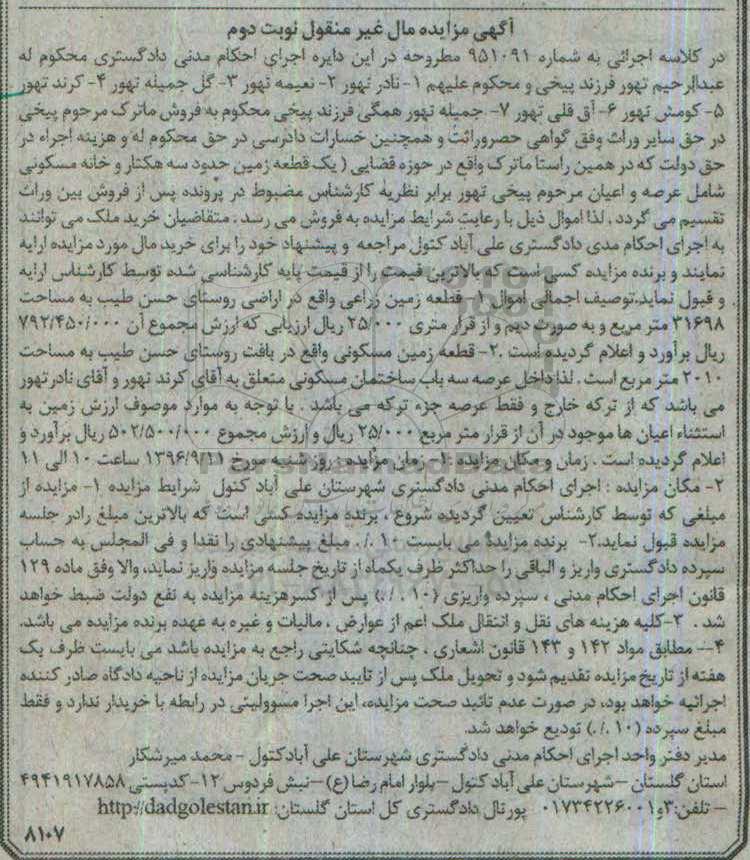 آگهی مزایده مال غیر منقول نوبت دوم
در کلاسه اجرائی به شماره ۹۵۱۰۹۱ مطروحه در این دایره اجرای احکام مدنی دادگستری محکوم له
عبدالرحیم تهور فرزند پیخی و محکوم علیهم ۱- نادر تهور ۲- نعیمه تهور ۳- گل جمیله تهور ۴- کرند تهور
۵- کومش تهور ۶- آق قلی تهور ۷- جمیله تهور همگی فرزند پیخی محکوم به فروش ماترک مرحوم پیخی
در حق سایر وراث وفق گواهی حصروراثت و همچنین خسارات دادرسی در حق محکوم له و هزینه اجراء در
حق دولت که در همین راستا ماترک واقع در حوزه قضایی ( یک قطعه زمین حدود سه هکتار و خانه مسکونی
شامل عرصه و اعیان مرحوم پیخی تهور برابر نظریه کارشناس مضبوط در پرونده پس از فروش بین وراث
تقسیم می گردد . لذا اموال ذیل با رعایت شرایط مزایده به فروش می رسد . متقاضیان خرید ملک می توانند
به اجرای احکام مدی دادگستری علی آباد کتول مراجعه و پیشنهاد خود را برای خرید مال مورد مزایده ارایه
نمایند و برنده مزایده کسی است که بالاترین قیمت را از قیمت پایه کارشناسی شده توسط کارشناس ارایه
و قبول نماید.توصیف اجمالی اموال ۱- قطعه زمین زراعی واقع در اراضی روستای حسن طیب به مساحت
۳۱۶۹۸ متر مربع و به صورت دیم و از قرار متری ۲۵/۰۰۰ ریال ارزیابی که ارزش مجموع آن ۷۹۲/۴۵۰/۰۰۰
ریال برآورد و اعلام گردیده است .۲- قطعه زمین مسکونی واقع در بافت روستای حسن طیب به مساحت
۲۰۱۰ متر مربع است . لذا داخل عرصه سه باب ساختمان مسکونی متعلق به آقای کرند تهور و آقای نادر تهور
می باشد که از ترکه خارج و فقط عرصه جزء ترکه می باشد . با توجه به موارد موصوف ارزش زمین به
استثناء اعیان ها موجود در آن از قرار متر مربع ۲۵/۰۰۰ ریال و ارزش مجموع ۵۰۲/۵۰۰/۰۰۰ ریال برآورد و
اعلام گردیده است . زمان و مکان مزایده ۱- زمان مزایده : روز شنبه مورخ ۱۳۹۶/۹/۱۱ ساعت ۱۰ الی ۱۱
۲- مکان مزایده : اجرای احکام مدنی دادگستری شهرستان علی آباد کتول شرایط مزایده ۱- مزایده از
مبلغی که توسط کارشناس تعیین گردیده شروع ، برنده مزایده کسی است که بالاترین مبلغ رادر جلسه
مزایده قبول نماید.۲- برنده مزایده می بایست ۱۰ ./. مبلغ پیشنهادی را نقدا و فی المجلس به حساب
سپرده دادگستری واریز و الباقی را حداکثر ظرف یکماه از تاریخ جلسه مزایده واریز نماید، والا وفق ماده ۱۲۹
قانون اجرای احکام مدنی ، سپرده واریزی (۱۰ ./.) پس از کسر هزینه مزایده به نفع دولت ضبط خواهد
شد . ۳-کلیه هزینه های نقل و انتقال ملک اعم از عوارض ، مالیات و غیره به عهده برنده مزایده می باشد.
۴-- مطابق مواد ۱۴۲ و ۱۴۳ قانون اشعاری ، چنانچه شکایتی راجع به مزایده باشد می بایست ظرف یک
هفته از تاریخ مزایده تقدیم شود و تحویل ملک پس از تایید صحت جریان مزایده از ناحیه دادگاه صادر کننده
اجرائیه خواهد بود، در صورت عدم تائید صحت مزایده، این اجرا مسوولیتی در رابطه با خریدار ندارد و فقط
مبلغ سپرده (۱۰ ./.) تودیع خواهد شد.
مدیر دفتر واحد اجرای احکام مدنی دادگستری شهرستان علی آبادکتول - محمد میرشکار
استان گلستان –شهرستان علی آباد کتول –بلوار امام رضا (ع) –نبش فردوس ۱۲- کدپستی ۴۹۴۱۹۱۷۸۵۸
– تلفن:۳و۰۱۷۳۴۲۲۶۰۰۱ پورتال دادگستری کل استان گلستان: http://dadgolestan.ir
۸۱۰۷